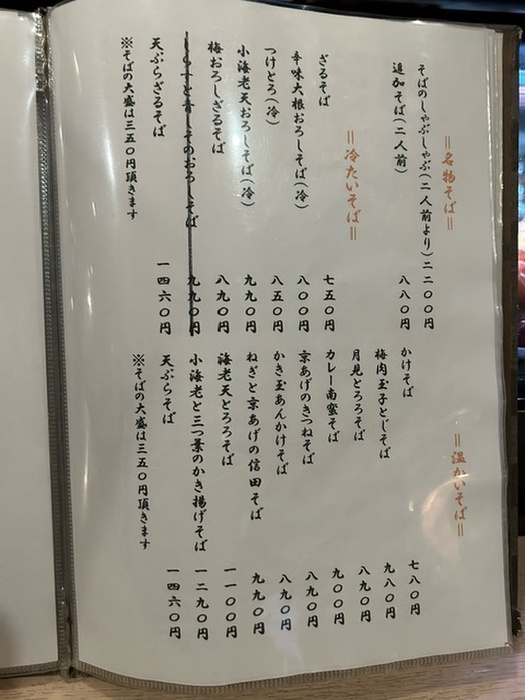 ＝名物そば＝
そばのしゃぶしゃぶ(二人前より)二二〇〇円
追加そば(二人前) 八八〇円
＝冷たいそば＝
ざるそば 七五〇円
辛味大根おろしそば(冷) 八〇〇円
つけとろ(冷) 八五〇円
小海老天おろしそば(冷) 九九〇円
梅おろしざるそば 八九〇円
しらすと青しそのおろしそば 九九〇円
天ぷらざるそば 一四六〇円
※そばの大盛は三五〇円頂きます
＝温かいそば＝
かけそば 七八〇円
梅肉玉子とじそば 九八〇円
月見とろろそば 八九〇円
カレー南蛮そば 九〇〇円
京あげのきつねそば 八九〇円
かき玉あんかけそば 八九〇円
ねぎと京あげの信田そば 九九〇円
海老天とろろそば 一一〇〇円
小海老と三つ葉のかき揚げそば 一二九〇円
天ぷらそば 一四六〇円
※そばの大盛は三五〇円頂きます